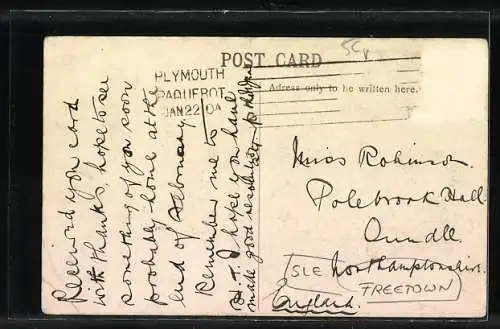 POST CARD
PLYMOUTH
PAQUEBOT
JAN 22 04
Adress only to be written here.
5c
Received you card
with thanks, hope to see
something of you soon
probably home at the
end of February.
Remember me to
I hope you have
made good resolutions
Miss Robinson.
Polebrook Hall.
Oundle.
Northamptonshire.
England.
SLE
FREETOWN